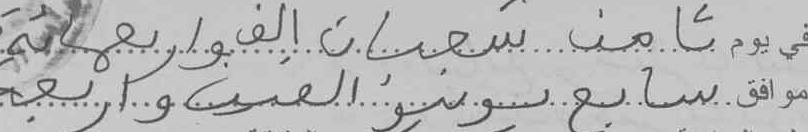 في يوم ثامن شعبان الف واربعمائة
موافق سابع يونيو الفين واربعة